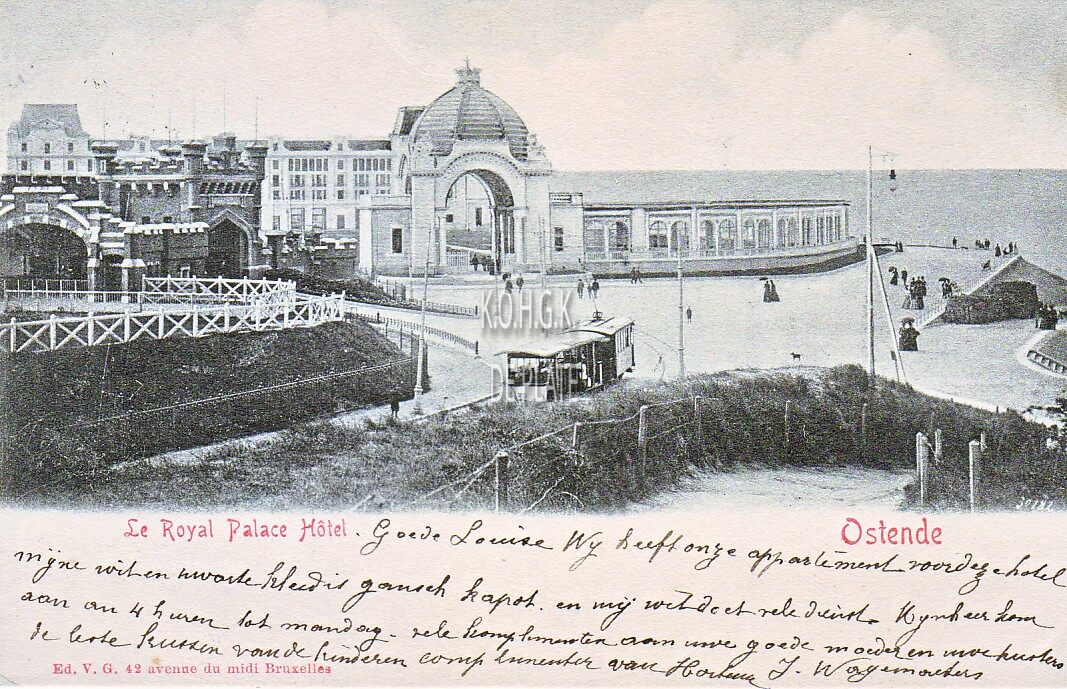 K.O.H.G.K
DE PLATE
Le Royal Palace Hôtel. Goede Louise Wy heeft onze appartement voor deze hotel Ostende
mijne wit en zwarte kleed is gansch kapot. en mij wit doet vele dienst. Mynheer kom
aan om 4 huren tot mandag. vele komplimenten aan uwe goede moeder en uwe zusters
de beste kussen van de kinderen complimenten van Hortense J. Wagemaekers
Ed. V. G. 42 avenue du midi Bruxelles